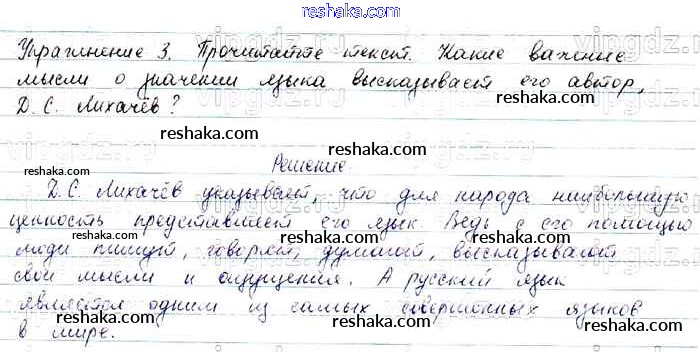 reshaka.com
Упражнение 3. Прочитайте текст. Какие важные
мысли о значении языка высказывает его автор,
Д. С. Лихачёв?
reshaka.com
reshaka.com
Решение
reshaka.com
Д. С. Лихачёв указывает, что для народа наибольшую
ценность представляет его язык. Ведь с его помощью
reshaka.com
люди пишут, говорят, думают, высказывают
reshaka.com
свои мысли и ощущения. А русский язык
reshaka.com
является одним из самых совершенных языков
reshaka.com
в мире.
reshaka.com
reshaka.com